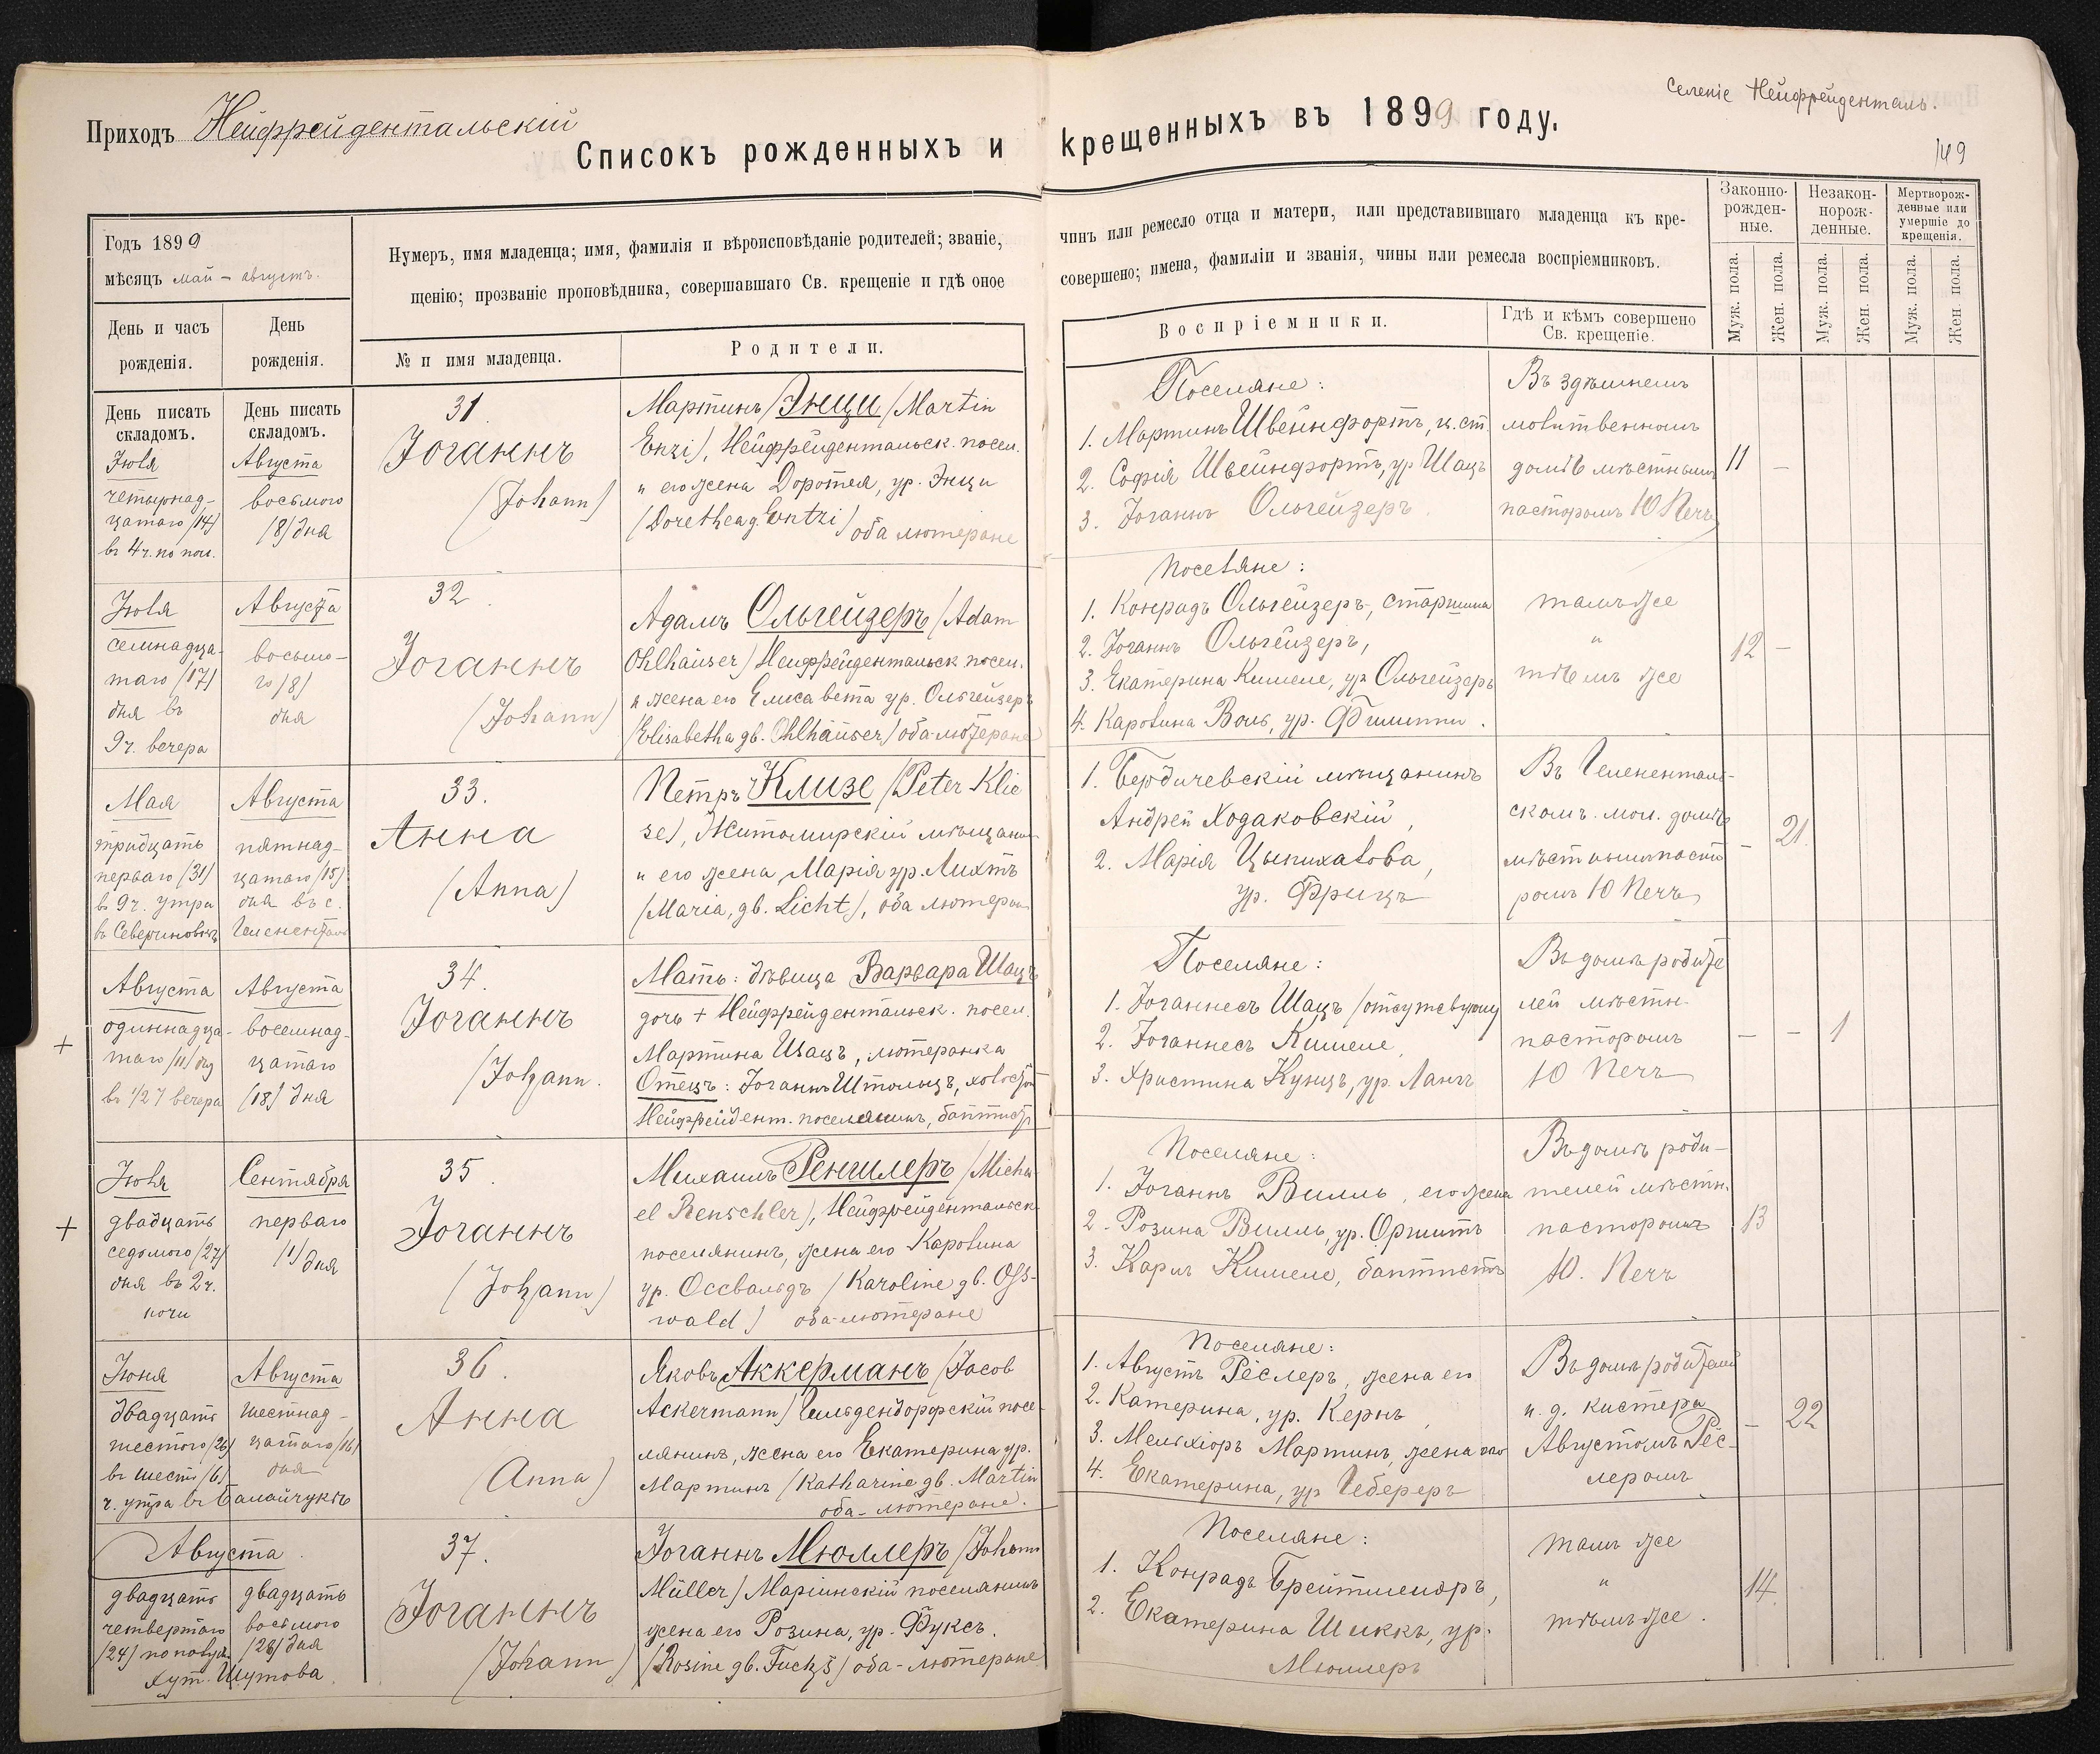 Приходъ Нейфрейдентальскій
Списокъ рожденныхъ и крещенныхъ въ 1899 году.
Селеніе Нейфрейденталь.
149
Годъ 1899
мѣсяцъ май – августъ.
Нумеръ, имя младенца; имя, фамилія и вѣроисповѣданіе родителей; званіе, чинъ или ремесло отца и матери, или представившаго младенца къ кре-
щенію; прозваніе проповѣдника, совершавшаго Св. крещеніе и гдѣ оное совершено; имена, фамиліи и званія, чины или ремесла воспріемниковъ.
Законно-
рожден-
ные.
Незакон-
норож-
денные.
Мертворож-
денные или
умершіе до
крещенія.
Муж. пола.
Жен. пола.
Муж. пола.
Жен. пола.
Муж. пола.
Жен. пола.
День и часъ
рожденія.
День
рожденія.
№ и имя младенца.
Родители.
Воспріемники.
Гдѣ и кѣмъ совершено
Св. крещеніе.
День писать
складомъ.
День писать
складомъ.
Іюля
четырнад-
цатаго /14/
въ 4 ч. по пол.
Августа
восьмого
/8/ дня
31.
Іоганнъ
(Johann)
Мартинъ Энци /Martin
Enzi/, Нейфрейдентальск. посел.
и его жена Доротея, ур. Энци
/Dorethea g. Entzi/ оба лютеране
Поселяне:
1. Мартинъ Швейнфортъ, ц. ст.
2. Софія Швейнфортъ, ур. Шацъ
3. Іоганнъ Ольгейзеръ.
Въ здѣшнемъ
молитвенномъ
домѣ мѣстнымъ
пасторомъ Ю Печъ
11 –
Іюля
семнадца-
таго /17/
дня въ
9 ч. вечера
Августа
восьмо-
го /8/
дня
32.
Іоганнъ
(Johann)
Адамъ Ольгейзеръ /Adam
Ohlhäuser/ Нейфрейдентальск. посел.
и жена его Елисавета ур. Ольгейзеръ
/Elisabetha gb. Ohlhäuser/ оба лютеране
Поселяне:
1. Конрадъ Ольгейзеръ, старшина
2. Іоганнъ Ольгейзеръ,
3. Екатерина Кимеле, ур. Ольгейзеръ
4. Каролина Воль, ур. Филиппи.
тамъ же
"
тѣмъ же
12 –
Мая
тридцать
перваго /31/
въ 9 ч. утра
въ Севериновкѣ
Августа
пятнад-
цатаго /15/
дня въ с.
Гелененталь
33.
Анна
(Anna)
Петръ Клизе /Peter Klie
se/, Житомирскій мѣщанин
и его жена Марія ур. Лихтъ
/Maria, gb. Licht/, оба лютеран
1. Бердичевскій мѣщанинъ
Андрей Ходаковскій,
2. Марія ур. Фрицъ
Въ Геленентальс-
скомъ мол. домѣ
мѣстнымъ пасто
ромъ Ю Печъ
– 21.
+
Августа
одиннадца-
таго /11/ дня
въ 1/2 7 вечера
Августа
восемнад-
цатаго
(18) дня
34.
Іоганнъ
/Johann.
Мать: дѣвица Варвара Шацъ
дочь + Нейфрейдентальск. посел.
Мартина Шацъ, лютеранка
Отецъ: Іоганнъ Штольцъ, холост
Нейфрейдент. поселянинъ, баптистъ
Поселяне:
1. Іоганнесъ Шацъ /отсутствующ
2. Іоганнесъ Кимеле,
3. Христина Кунцъ, ур. Лангъ
Въ домѣ родите
лей мѣстн.
пасторомъ
Ю Печъ
– – 1
+
Іюля
двадцать
седьмого /27/
дня въ 2 ч.
ночи
Сентября
перваго
/1/ дня
35.
Іоганнъ
(Johann)
Михаилъ Реншлеръ /Micha
el Renschler/, Нейфрейдентальск
поселянинъ, жена его Каролина
ур. Оссвальдъ /Karoline gb. Oss-
wald/ оба-лютеране
Поселяне:
1. Іоганнъ Вилль, его жена
2. Розина Вилль, ур. Ортитъ
3. Карлъ Кимеле, баптистъ
Въ домѣ роди-
телей мѣстн.
пасторомъ
Ю. Печъ
13
Іюня
двадцать
шестого /26/
въ шесть /6/
ч. утра въ Балайчукѣ
Августа
шестнад-
цатаго /16/
дня
36.
Анна
(Anna)
Яковъ Аккерманъ /Jacob
Ackermann/ Гильдендорфскій посе-
лянинъ, жена его Екатерина ур.
Мартинъ /Katharine gb. Martin
оба-лютеране.
Поселяне:
1. Августъ Рёслеръ, жена его
2. Катерина, ур. Кернъ,
3. Мельхіоръ Мартинъ, жена его
4. Екатерина, ур. Геберeръ
Въ домѣ родителей
и. д. кистера
Августомъ Рёс-
леромъ
– 22
Августа.
двадцать
четвертаго
/24/ по полуд.
двадцать
восьмого
/28/ дня
хут. Шутова
37.
Іоганнъ
(Johann)
Іоганнъ Мюллеръ /Johann
Müller/ Маріинскій поселянинъ
жена его Розина, ур. Фуксъ.
/Rosine gb. Fuchs/ оба-лютеране
Поселяне:
1. Конрадъ,
2. Екатерина Шиккъ, ур.
Мюллеръ
тамъ же
"
тѣмъ же.
14.